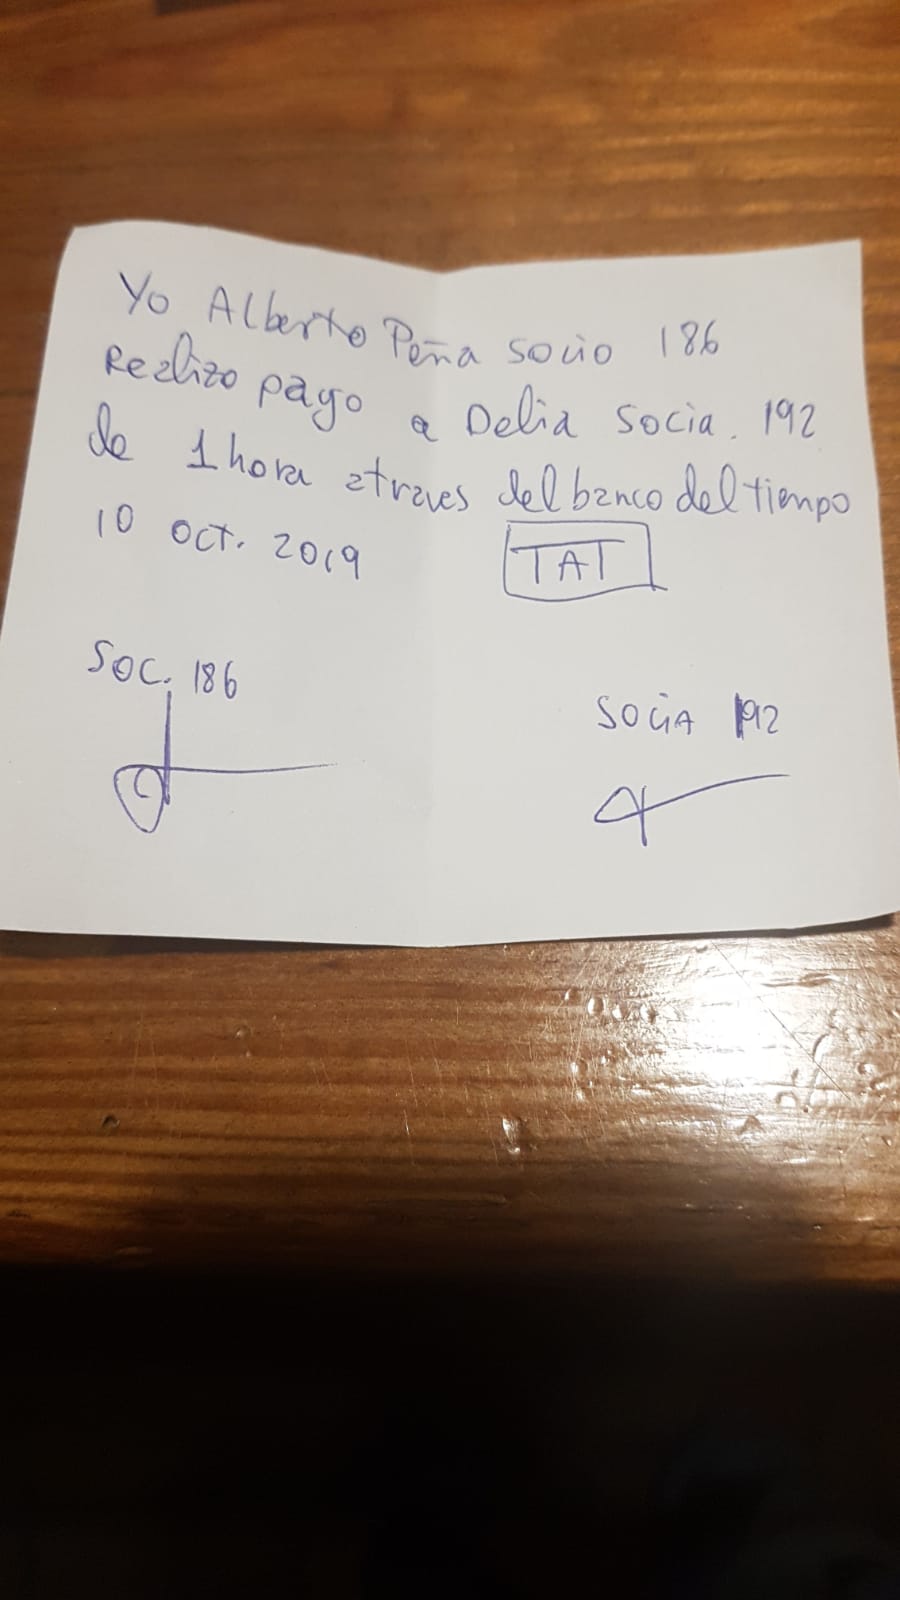 Yo Alberto Peña socio 186
Realizo pago a Delia socia. 192
de 1 hora atraves del banco del tiempo
10 oct. 2019 TAT
Soc. 186
SOCIA 192